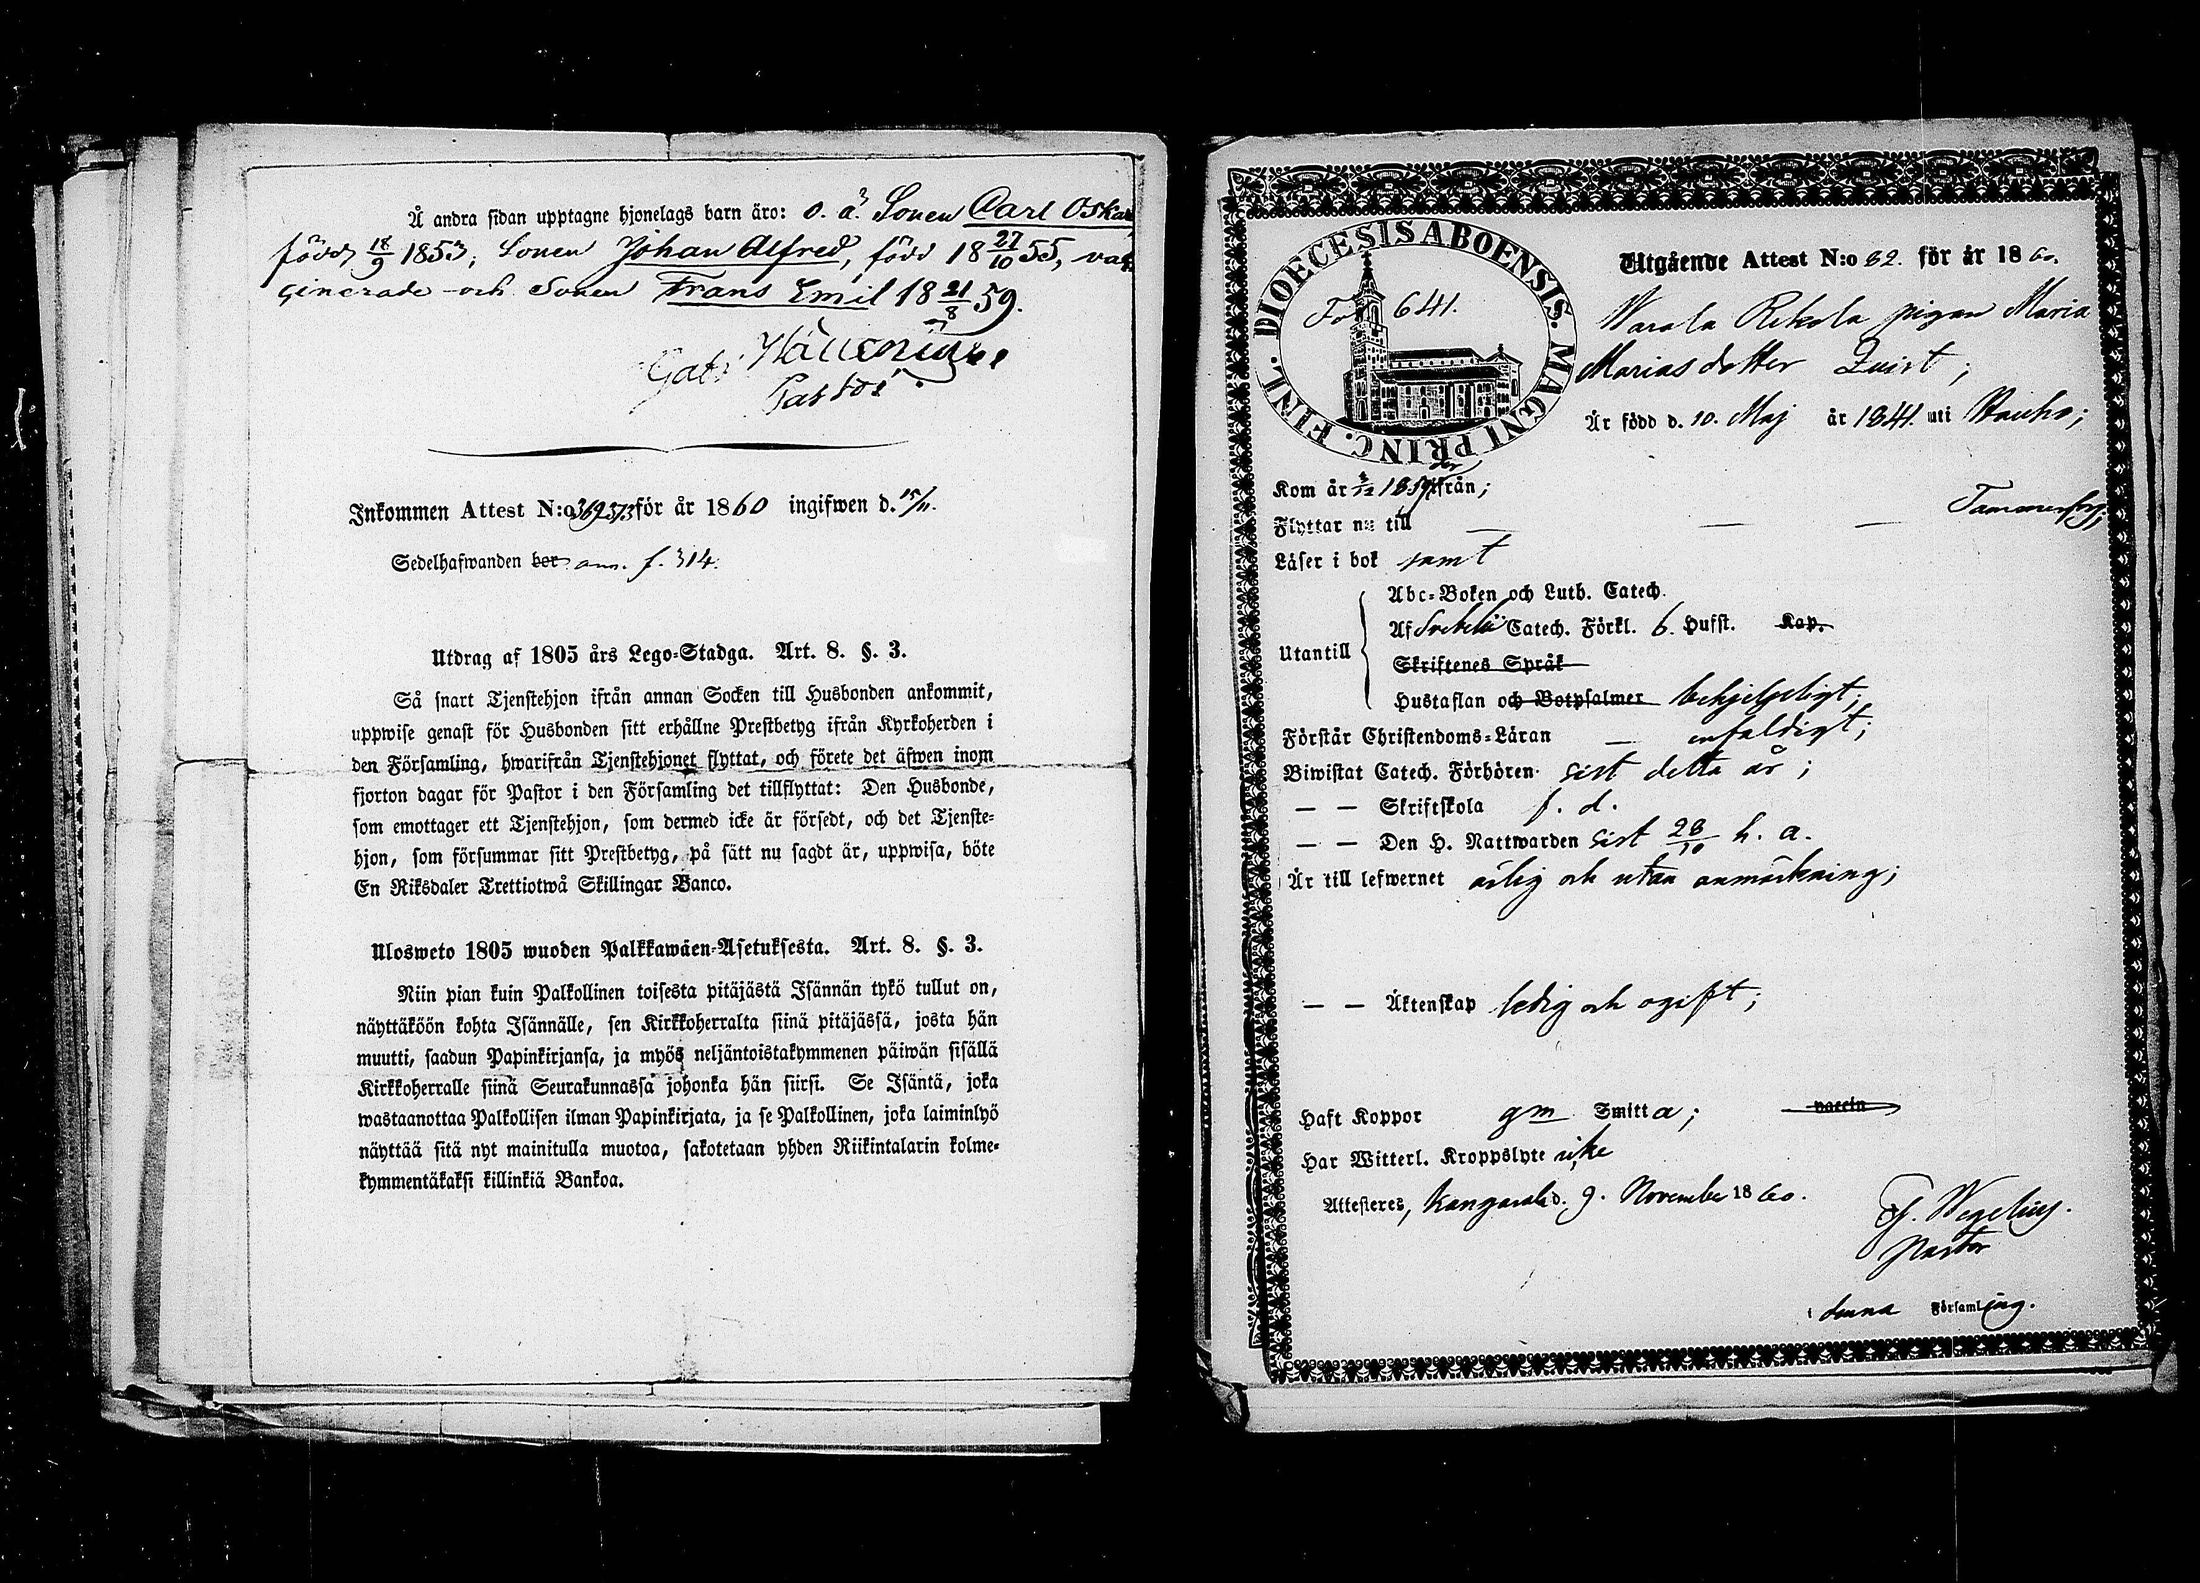 Å andra sidan upptagne hjonelags barn äro: o. ä. Sonen Carl Oskar
född 18/9 1853, Sonen Johan Alfred, född 18 27/10 55, vac
cinerade och Sonen Frans Emil 18 21/8 59.
Pastor.
Inkommen Attest N:o 369 373 för år 1860 ingifwen d. 15/11.
Sedelhafwanden bor ann. f. 314.
Utdrag af 1805 års Lego-Stadga. Art. 8. §. 3.
Så snart Tjenstehjon ifrån annan Socken till Husbonden ankommit,
uppwise genast för Husbonden sitt erhållne Prestbetyg ifrån Kyrkoherden i
den Församling, hwarifrån Tjenstehjonet flyttat, och förete det äfwen inom
fjorton dagar för Pastor i den Församling det tillflyttat: Den Husbonde,
som emottager ett Tjenstehjon, som dermed icke är försedt, och det Tjenste-
hjon, som försummar sitt Prestbetyg, på sätt nu sagdt är, uppwisa, böte
En Riksdaler Trettiotwå Skillingar Banco.
Ulosweto 1805 wuoden Palkkawäen-Asetuksesta. Art. 8. §. 3.
Niin pian kuin Palkollinen toisesta pitäjästä Isännän tykö tullut on,
näyttäköön kohta Isännälle, sen Kirkkoherralta siinä pitäjässä, josta hän
muutti, saadun Papinkirjansa, ja myös neljäntoistakymmenen päiwän sisällä
Kirkkoherralle siinä Seurakunnassa johonka hän siirsi. Se Isäntä, joka
wastaanottaa Palkollisen ilman Papinkirjata, ja se Palkollinen, joka laiminlyö
näyttää sitä nyt mainitulla muotoa, sakotetaan yhden Riikintalarin kolme-
kymmentäkaksi killinkiä Bankoa.
DIOECESIS ABOENSIS. MAGNI PRINC. FINL.
Fol 641.
Utgående Attest N:o 62. för år 1860.
Warala Rekola pigan Maria
Mariasdotter Qvist;
Är född d. 10. Maj år 1841. uti Hauho;
Kom år 1859 derifrån;
Flyttar nu till — — — Tammerfors;
Läser i bok samt
Utantill
Abc-Boken och Luth. Catech.
Af Svebelii Catech. Förkl. 6. Hufst. Kap.
Skriftenes Språk
Hustaflan och Botpsalmer behjelpeligt;
Förstår Christendoms-Läran — enfaldigt;
Biwistat Catech. Förhören sist detta år;
— — Skriftskola f. d.
— — Den H. Nattwarden sist 28/10 h. a.
Är till lefwernet ärlig och utan anmärkning;
— — Äktenskap ledig och ogift;
Haft Koppor gm Smitta; vaccin
Har Witterl. Kroppslyte icke
Attesteres, Kangasala d. 9. November 1860.
Fj. Wegelius.
Pastor
i denna Församling.